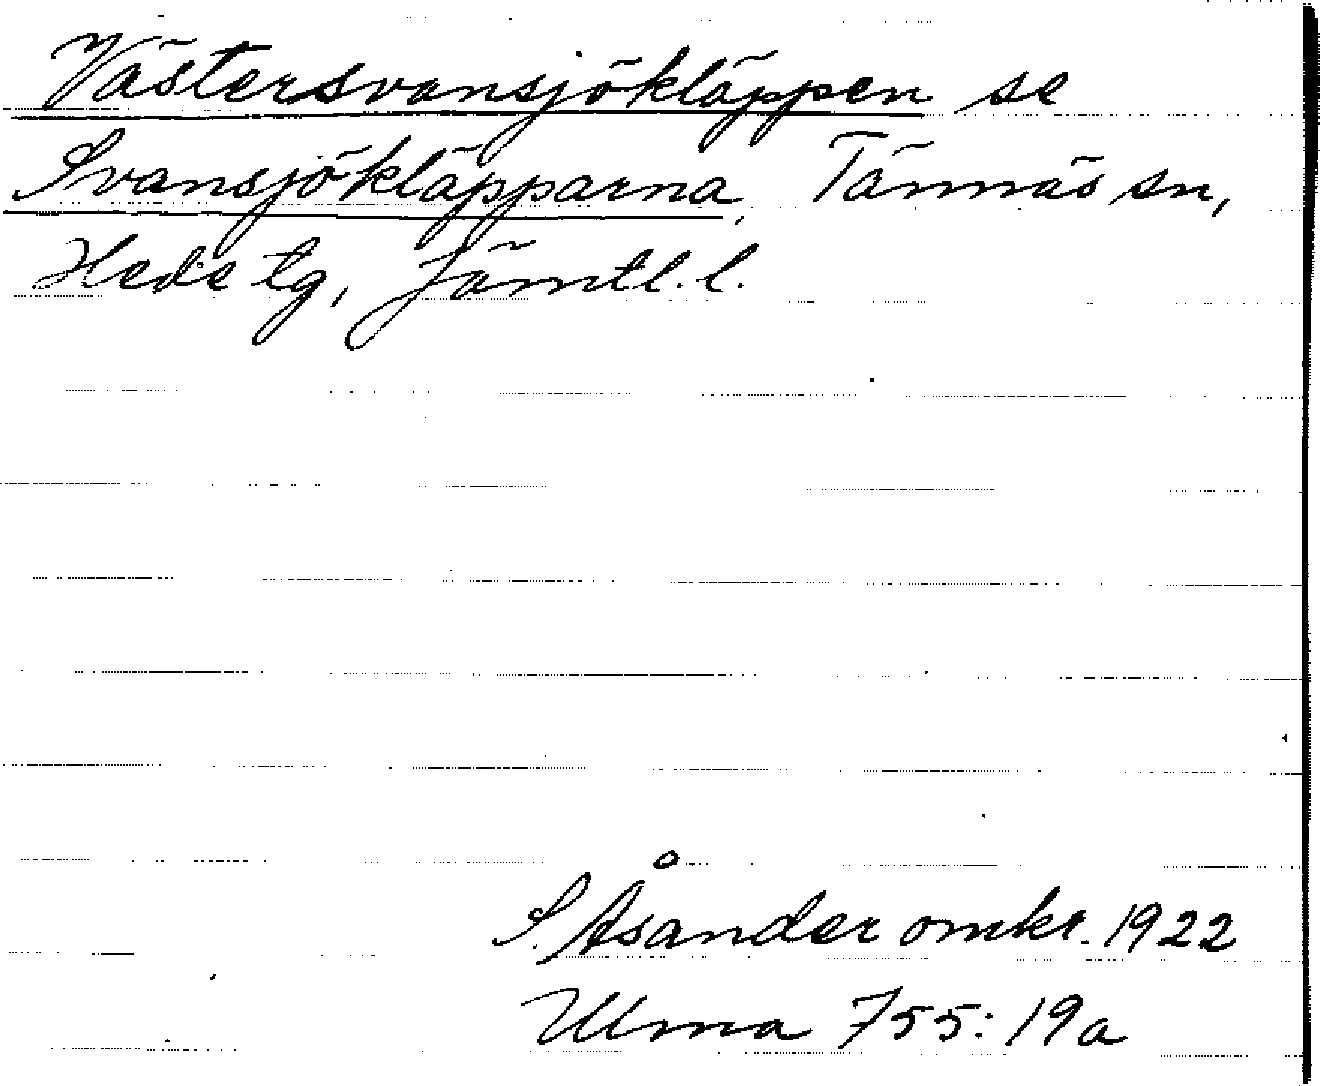 Västersvansjökläppen se
Svansjökläpparna, Tännäs sn,
Heds tg, Jämtl. l.
S. Åsander omkr. 1922
Ulma 755: 19a